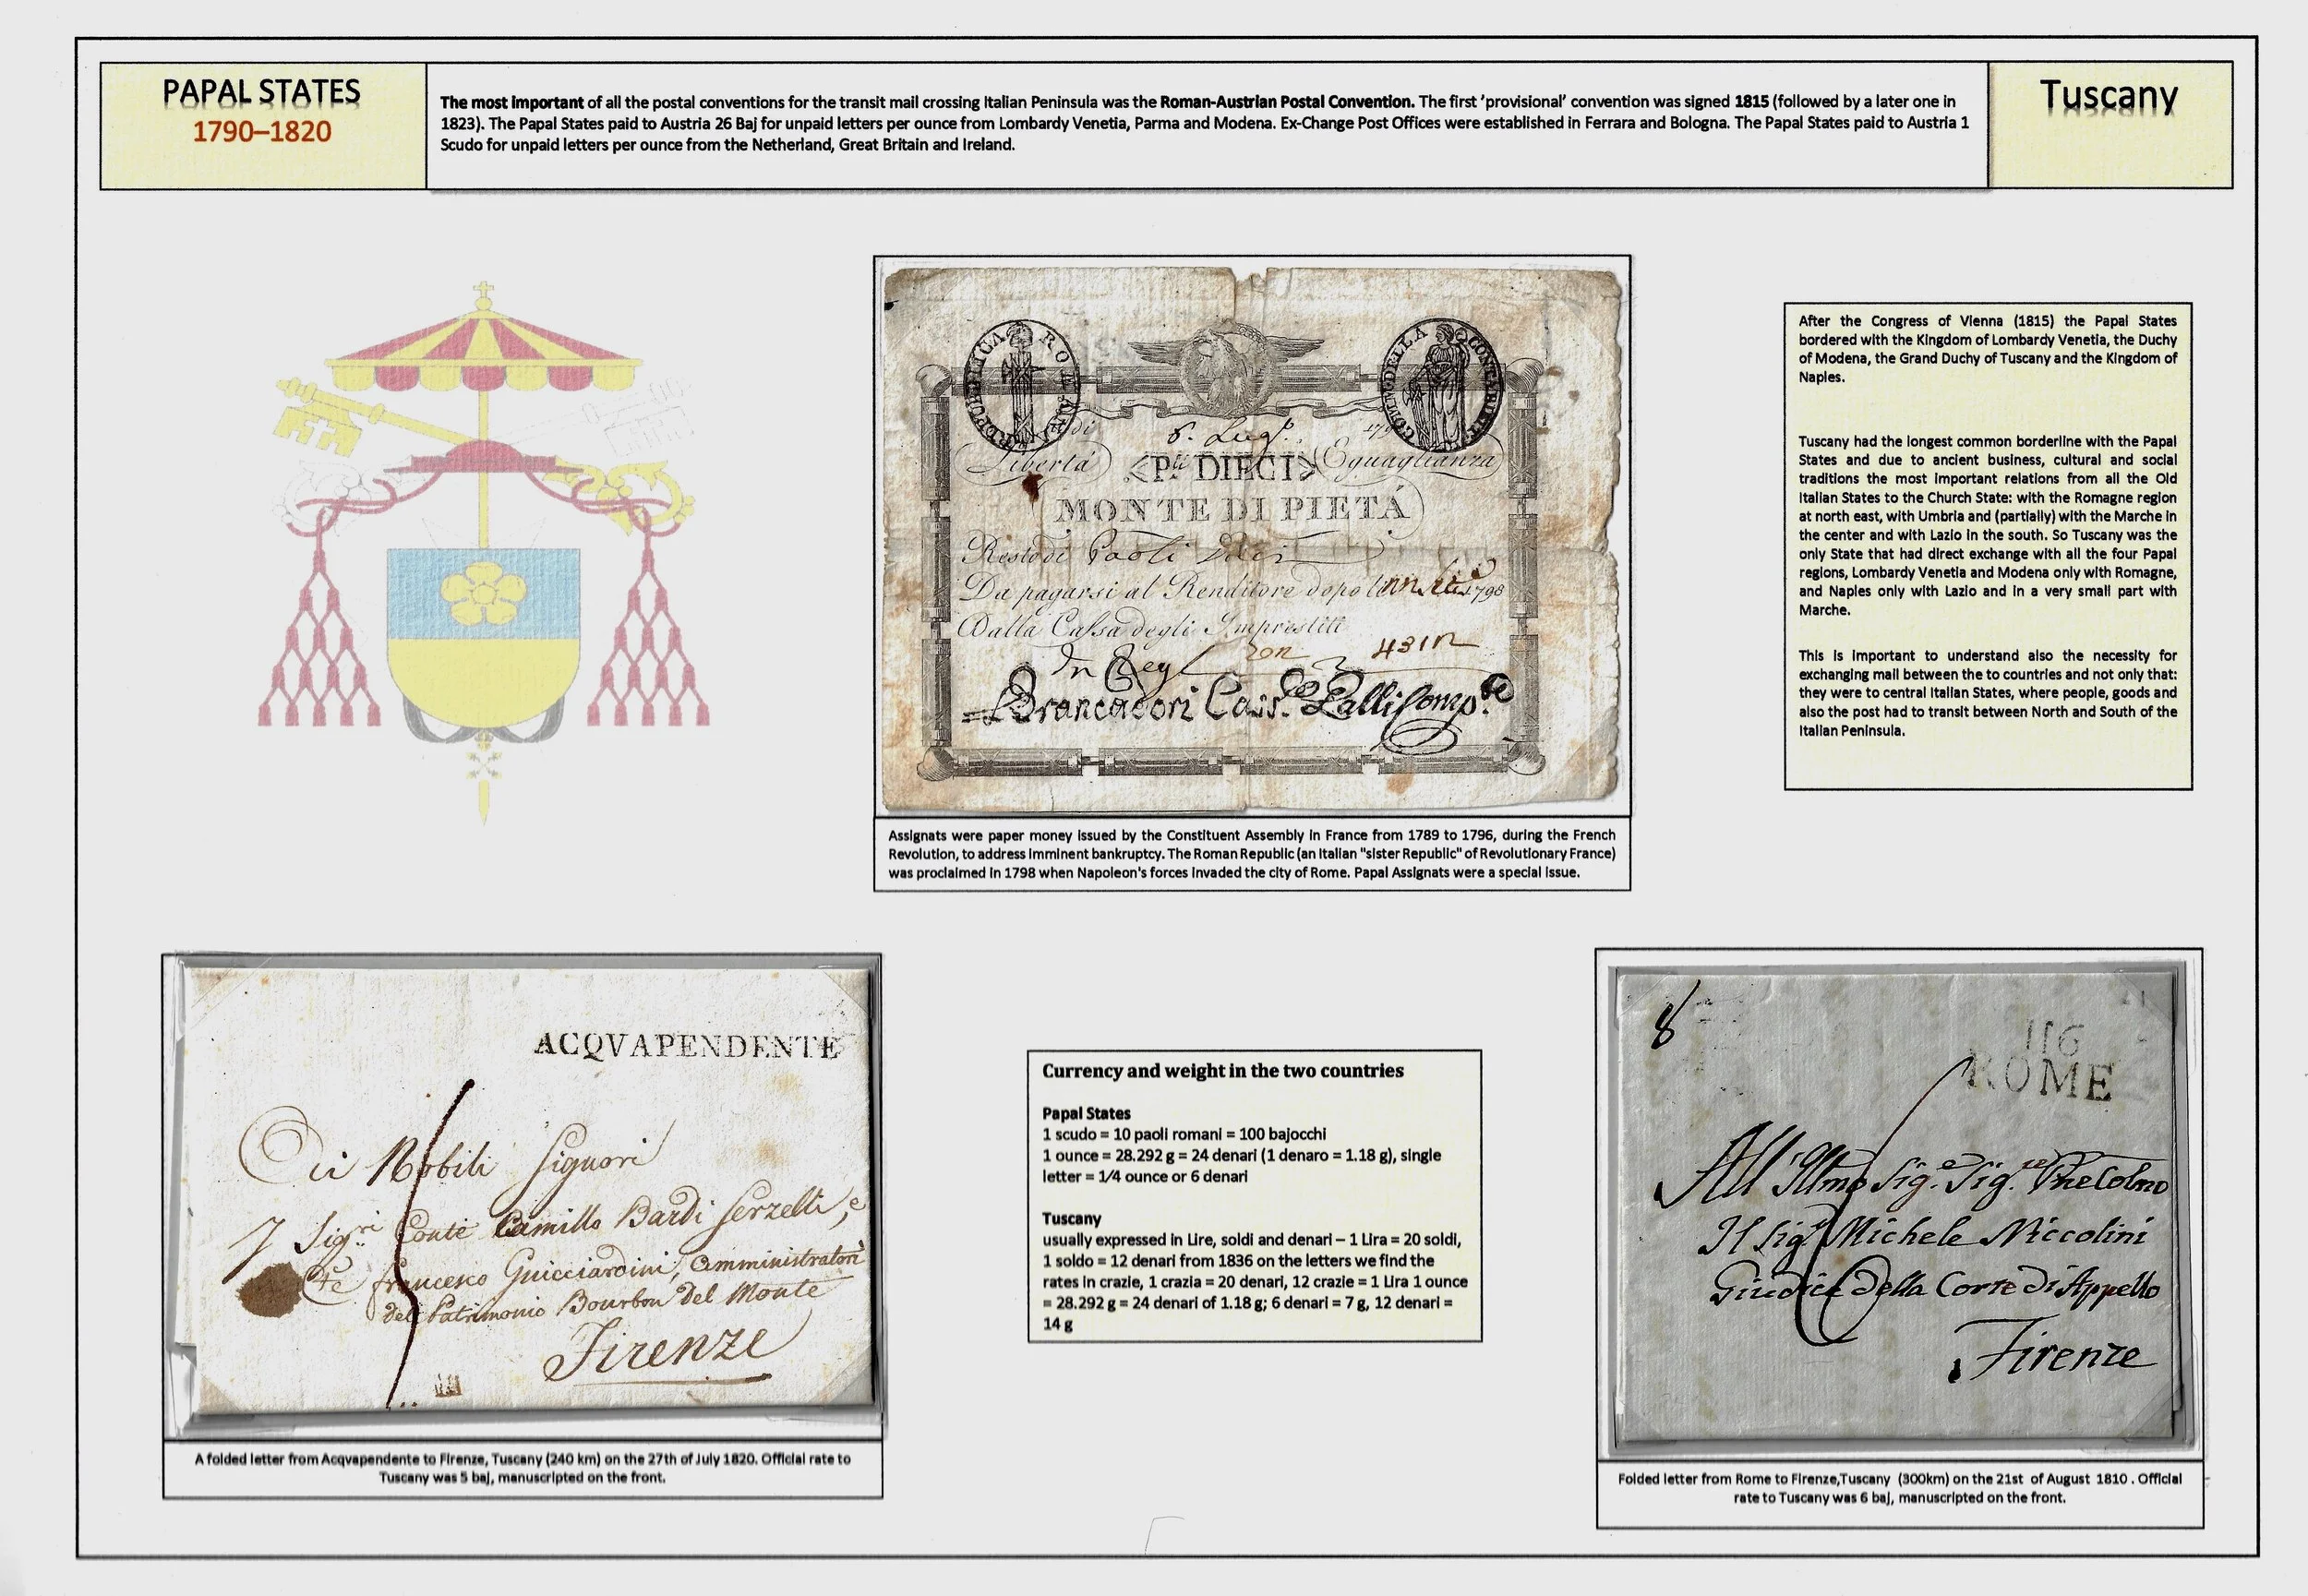 PAPAL STATES
1790–1820
The most important of all the postal conventions for the transit mail crossing Italian Peninsula was the Roman-Austrian Postal Convention. The first 'provisional' convention was signed 1815 (followed by a later one in
1823). The Papal States paid to Austria 26 Baj for unpaid letters per ounce from Lombardy Venetia, Parma and Modena. Ex-Change Post Offices were established in Ferrara and Bologna. The Papal States paid to Austria 1
Scudo for unpaid letters per ounce from the Netherland, Great Britain and Ireland.
Tuscany
REPUBLICA ROMANA
DELLA
di 8. Lug. 179
Libertà
Eguaglianza
DIECI
MONTE DI PIETÁ
Resto di Paoli Dieci
Da pagarsi al Renditore dopo 1798
Dalla Cassa degli Imprestiti
In Reg
431
Brancadori Cass. Lalli Comp.
Assignats were paper money issued by the Constituent Assembly in France from 1789 to 1796, during the French
Revolution, to address imminent bankruptcy. The Roman Republic (an Italian "sister Republic" of Revolutionary France)
was proclaimed in 1798 when Napoleon's forces invaded the city of Rome. Papal Assignats were a special issue.
After the Congress of Vienna (1815) the Papal States
bordered with the Kingdom of Lombardy Venetia, the Duchy
of Modena, the Grand Duchy of Tuscany and the Kingdom of
Naples.
Tuscany had the longest common borderline with the Papal
States and due to ancient business, cultural and social
traditions the most important relations from all the Old
Italian States to the Church State: with the Romagne region
at north east, with Umbria and (partially) with the Marche in
the center and with Lazio in the south. So Tuscany was the
only State that had direct exchange with all the four Papal
regions, Lombardy Venetia and Modena only with Romagne,
and Naples only with Lazio and in a very small part with
Marche.
This is important to understand also the necessity for
exchanging mail between the to countries and not only that:
they were to central Italian States, where people, goods and
also the post had to transit between North and South of the
Italian Peninsula.
ACQVAPENDENTE
Nobili Signori
Sig.ri Conte Camillo Bardi Serzelli, e
Francesco Guicciardini, Amministratori
del Patrimonio Bourbon del Monte
Firenze
A folded letter from Acqvapendente to Firenze, Tuscany (240 km) on the 27th of July 1820. Official rate to
Tuscany was 5 baj, manuscripted on the front.
Currency and weight in the two countries
Papal States
1 scudo = 10 paoli romani = 100 bajocchi
1 ounce = 28.292 g = 24 denari (1 denaro = 1.18 g), single
letter = 1/4 ounce or 6 denari
Tuscany
usually expressed in Lire, soldi and denari – 1 Lira = 20 soldi,
1 soldo = 12 denari from 1836 on the letters we find the
rates in crazie, 1 crazia = 20 denari, 12 crazie = 1 Lira 1 ounce
= 28.292 g = 24 denari of 1.18 g; 6 denari = 7 g, 12 denari =
14 g
8
116
ROME
All' Illmo Sig.e Sig.
Il Sig Michele Niccolini
Giudice della Corte di Appello
Firenze
Folded letter from Rome to Firenze,Tuscany (300km) on the 21st of August 1810 . Official
rate to Tuscany was 6 baj, manuscripted on the front.